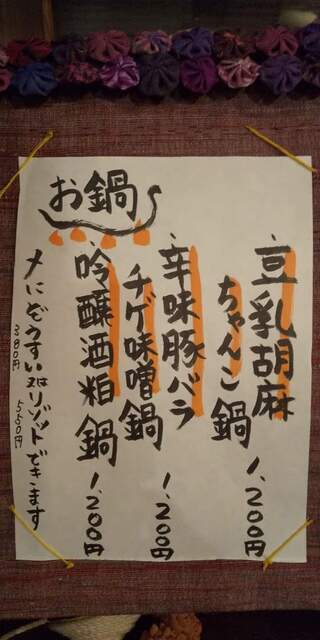 お鍋
豆乳胡麻
ちゃんこ鍋 1,200円
辛味豚バラ
チゲ味噌鍋 1,200円
吟醸酒粕鍋 1,200円
〆にぞうすい又はリゾットできます
380円 550円